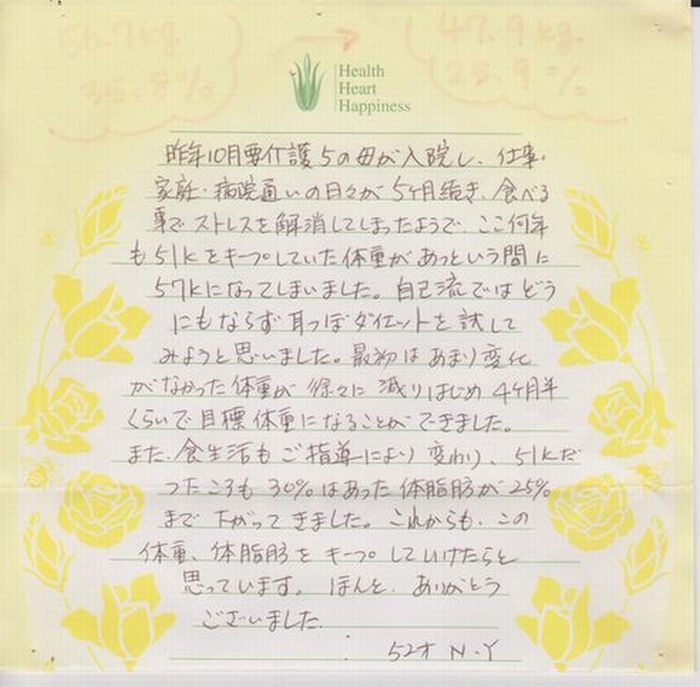 56.7kg → 47.9kg
35.8% 25.9%
Health
Heart
Happiness
昨年10月要介護5の母が入院し、仕事・
家庭・病院通いの日々が5ヶ月続き、食べる
事でストレスを解消してしまったようで、ここ何年
も51kをキープしていた体重があっという間に
57kになってしまいました。自己流ではどう
にもならず耳つぼダイエットを試して
みようと思いました。最初はあまり変化
がなかった体重が徐々に減りはじめ4ヶ月半
くらいで目標体重になることができました。
また、食生活もご指導により変わり、51kだ
ったころも30%はあった体脂肪が25%
まで下がってきました。これからも、この
体重、体脂肪をキープしていけたらと
思っています。ほんと、ありがとう
ございました。
52才 N・Y